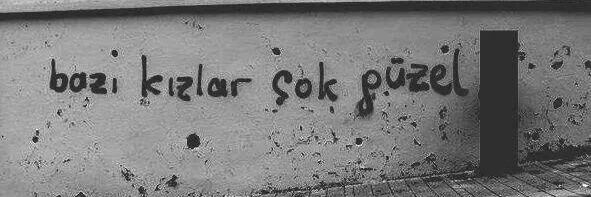 bazi kızlar çok güzel